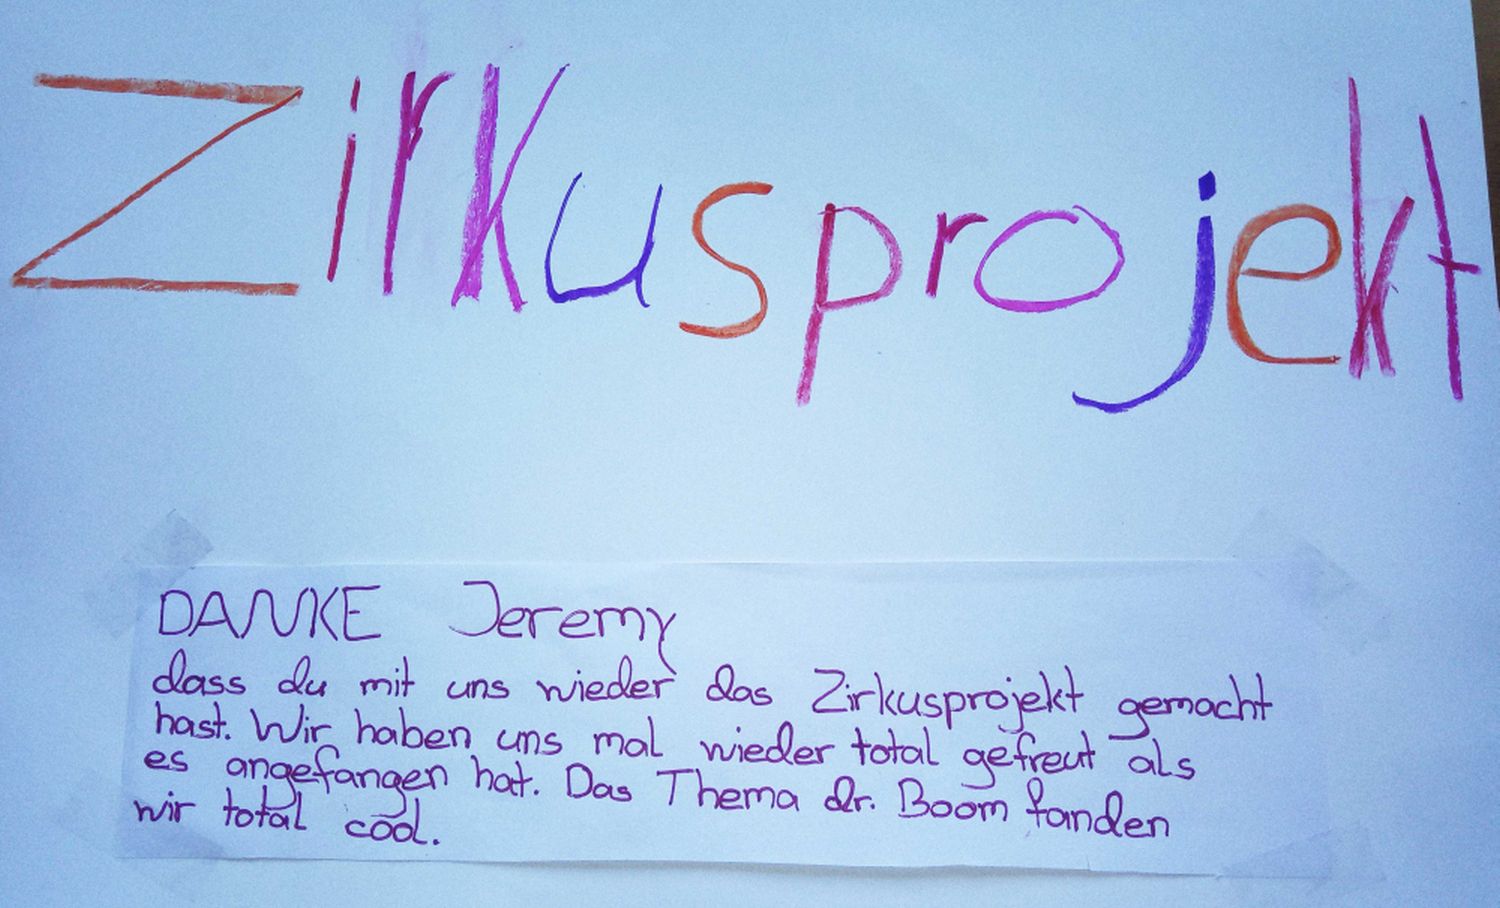 Zirkusprojekt
DANKE Jeremy
dass du mit uns wieder das Zirkusprojekt gemacht
hast. Wir haben uns mal wieder total gefreut als
es angefangen hat. Das Thema dr. Boom fanden
wir total cool.